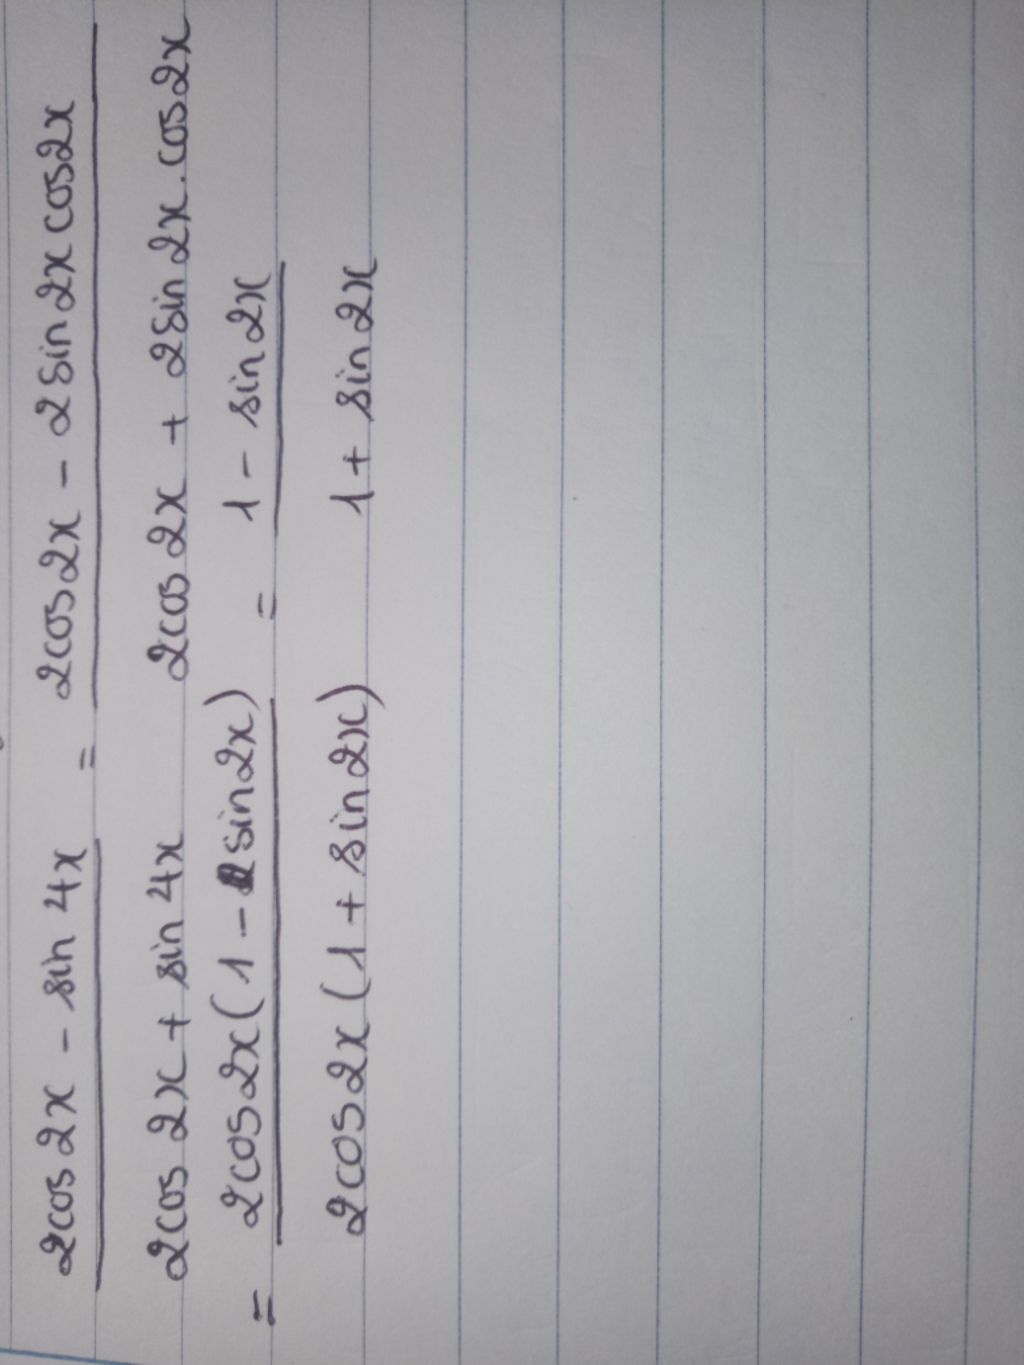 2cos2x - sin 4x = 2cos2x - 2 sin2x cos2x
2cos 2x + sin 4x 2cos 2x + 2sin 2x . cos2x
= 2cos2x (1 - sin2x) = 1 - sin 2x
2cos 2x (1 + sin 2x) 1 + sin 2x